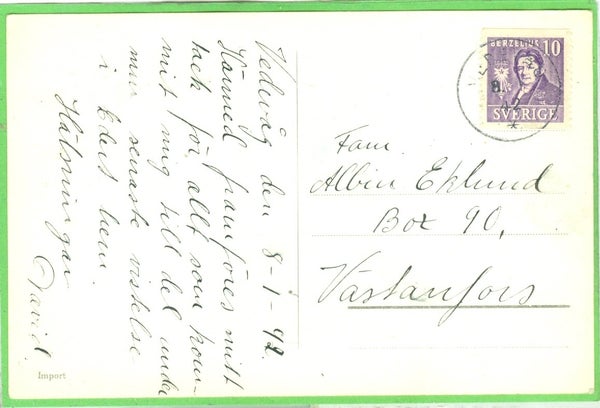 Vedevåg den 8-1-42.
Härmed framföres mitt
tack för allt som kom-
mit mig till del under
min senaste vistelse
i Edert hem.
Hälsningar
David.
Import
BERZELIUS 10
SVERIGE
8 1
42
Fam.
Albin Eklund
Box 90,
Västanfors